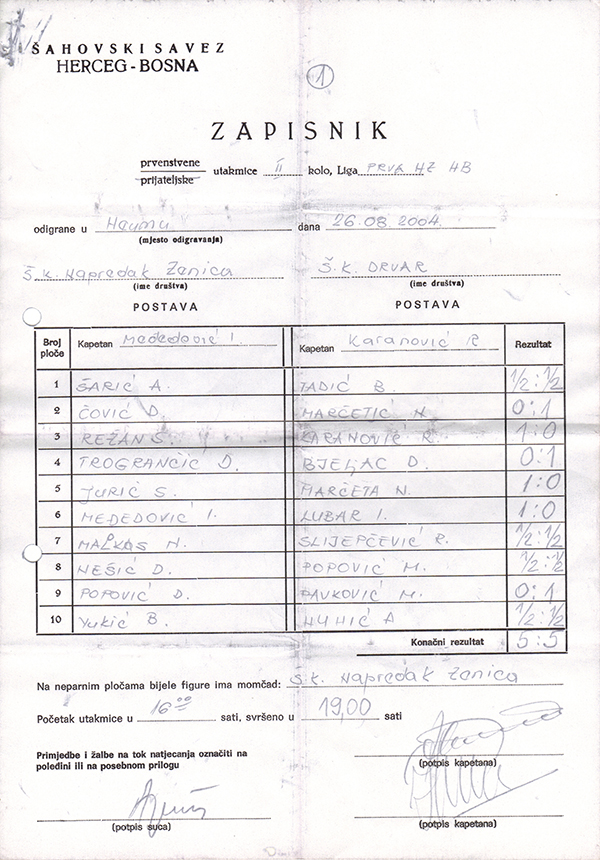 ŠAHOVSKI SAVEZ
HERCEG-BOSNA
1
ZAPISNIK
prvenstvene
prijateljske
utakmice II kolo, Liga PRVA HZ HB
odigrane u Neumu dana 26.08.2004.
(mjesto odigravanja)
Š.K. Napredak Zenica Š.K. DRVAR
(ime društva) (ime društva)
POSTAVA POSTAVA
Broj ploče Kapetan Međedović I. Kapetan Karanović R Rezultat
1 ŠARIĆ A. TADIĆ B. 1/2:1/2
2 ČOVIĆ D. MARČETIĆ N. 0:1
3 REŽAN S. KARANOVIĆ R. 1:0
4 TROGRANČIĆ D. BJELJAC D. 0:1
5 JURIĆ S. MARČETA N. 1:0
6 MEĐEDOVIĆ I. LUBAR I. 1:0
7 MALKOS N. ŠLIJEPČEVIĆ R. 1/2:1/2
8 NEŠIĆ D. POPOVIĆ M. 1/2:1/2
9 POPOVIĆ D. PAVKOVIĆ M. 0:1
10 Vukić B. A 1/2:1/2
Konačni rezultat 5:5
Na neparnim pločama bijele figure ima momčad: Š.K. Napredak Zenica
Početak utakmice u 16 00 sati, svršeno u 19,00 sati
Primjedbe i žalbe na tok natjecanja označiti na
poledini ili na posebnom prilogu
(potpis kapetana)
(potpis suca)
(potpis kapetana)